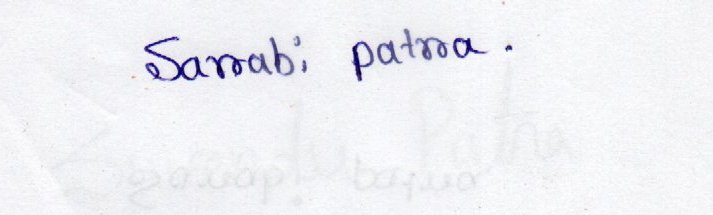 Sarrabi patra.